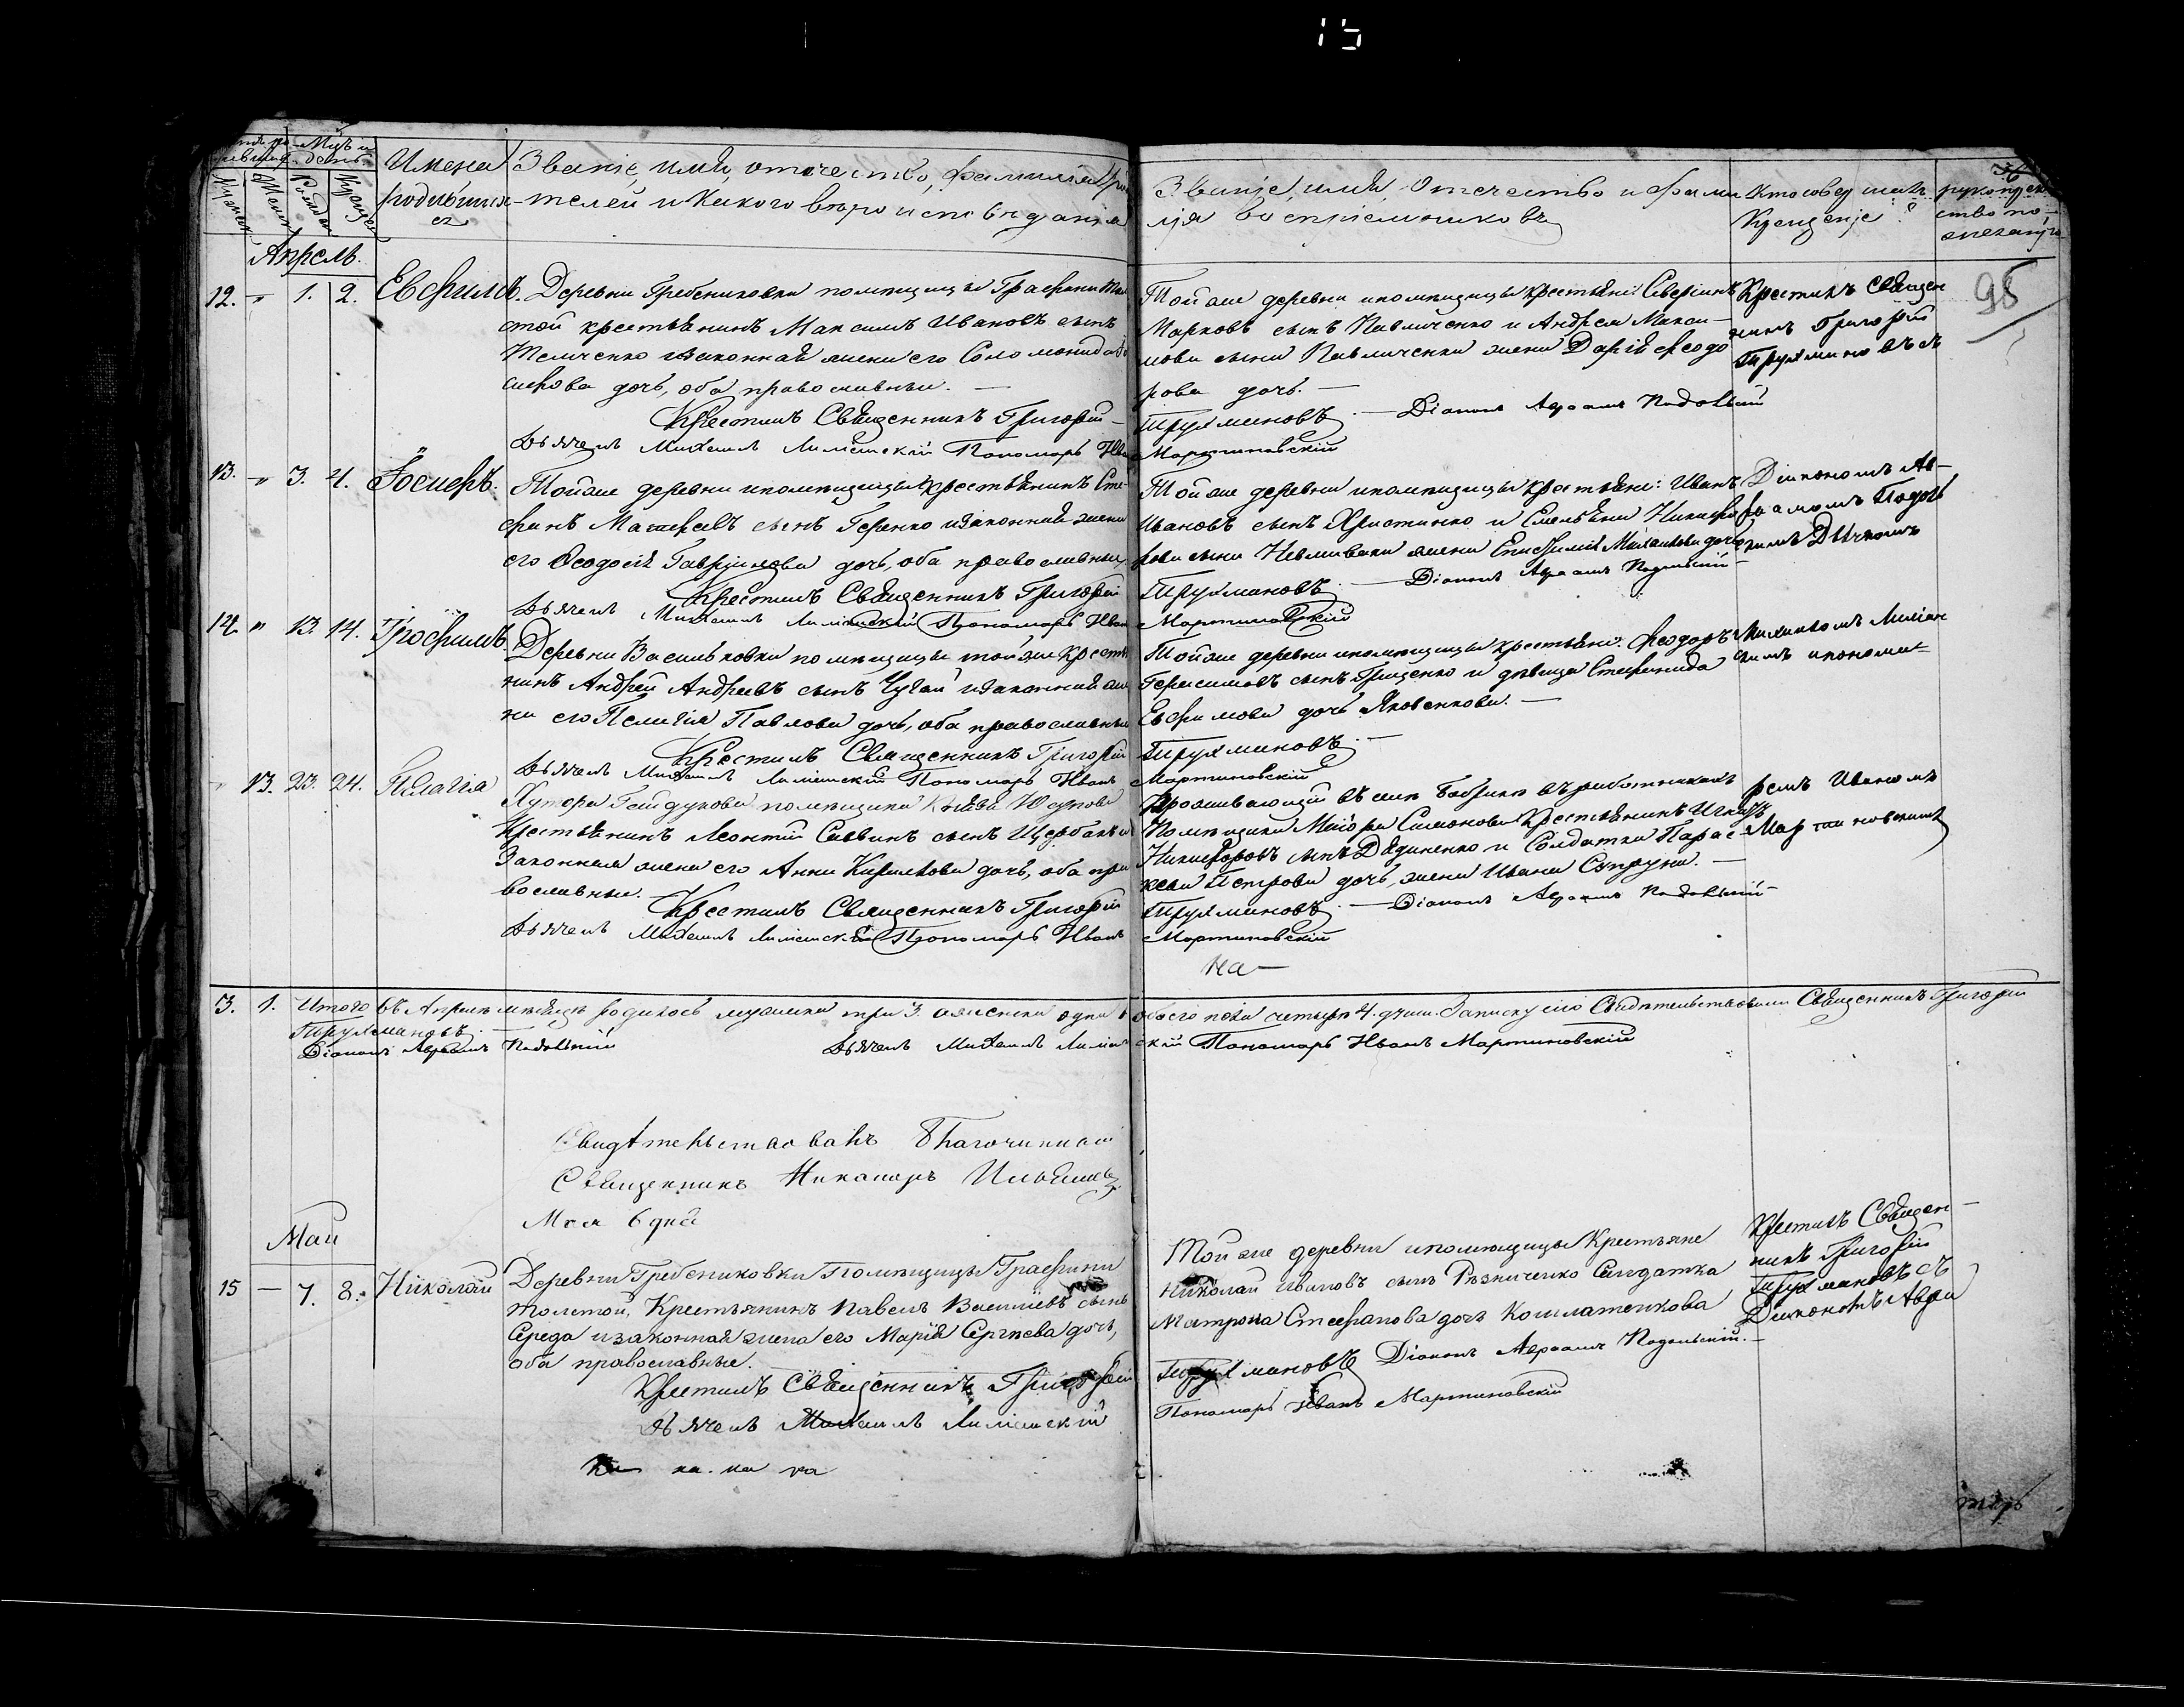 15
Имена
родившихся
Званіе, имя, отчество, фамилія
телей и какого вѣроисповѣданія
Званіе, имя, отчество и фами
лія воспріемниковъ
Кто совершалъ
Крещеніе?
рукоприклад
ство
Апрель.
12. " 1. 2. Евфимъ. Деревни Гребениковки помѣщицы Графини Тол
стой крестьянинъ Максимъ Ивановъ сынъ
законная жена его Соломонида
дочь, оба православные. —
Крестилъ Священникъ Григорій
Дьячекъ Михаилъ Пономарь Иванъ
Той же деревни и помѣщицы крестьяне: Северіанъ
Марковъ сынъ Павличенко и Андрея Макси-
мова сына Павличенка жена Дарія Ѳеодо
рова дочь. —
Трухмановъ — Діаконъ Авраамъ Подольскій
Мартиновскій
Крестилъ Священ
никъ Григорій
Трухмановъ съ
95
13. " 3. 4. Іосифъ. Той же деревни и помѣщицы крестьянинъ Сте-
фанъ сынъ Геренко и законная жена
его Ѳеодосія Гавріилова дочь, оба православные
Крестилъ Священникъ Григорій
Дьячекъ Михаилъ Пономарь Иванъ
Той же деревни и помѣщицы крестьяне: Иванъ
Ивановъ сынъ Христинко и Никифо
рова сына жена Михайлова дочь
Трухмановъ — Діаконъ Авраамъ Подольскій —
Мартиновскій
Діакономъ Ав-
раамомъ Подоль
скимъ Дьячкомъ
14. " 13. 14. Трофимъ. Деревни Васильковки помѣщицы той же крестья
нинъ Андрей Андреевъ сынъ Чубай и законная же
на его Пелагія Павлова дочь, оба православные
Крестилъ Священникъ Григорій
Дьячекъ Михаилъ Пономарь Иванъ
Той же деревни и помѣщицы крестьяне: Ѳеодоръ
Герасимовъ сынъ Грищенко и дѣвица Стефанида
Евфимова дочь Яковенкова. —
Трухмановъ. —
Мартиновскій
Михаиломъ
скимъ и понома-
" 13. 23. 24. Пелагія Хутора Гайдукова помѣщика Князя Юсупова
Крестьянинъ Леонтій Саввинъ сынъ Щербакъ и
Законная жена его Анна Кирилова дочь, оба пра
вославные.
Крестилъ Священникъ Григорій
Дьячекъ Михаилъ Пономарь Иванъ
Проживающій въ селѣ Бобрикѣ въ работникахъ
Помѣщика Маіора Симонова Крестьянинъ
Никифоровъ сынъ Дядиненко и Солдатка Парас
кева Петрова дочь, жена Ивана Супруна. —
Трухмановъ — Діаконъ Авраамъ Подольскій —
Мартиновскій
ремъ Иваномъ
Мартиновскимъ
на —
3. 1. Итого въ Апрелѣ мѣсяцѣ родилось мужеска три 3. а женска одна 1 обоего пола четыре 4. души. Записку сію Свидѣтельствовали Священникъ Григорій
Трухмановъ. —
Діаконъ Авраамъ Подольскій Дьячекъ Михаилъ Пономарь Иванъ Мартиновскій
Свидѣтельствовалъ Благочинный
Священникъ Никаноръ
Мая 6 дня
Май
15 — 7. 8. Николай Деревни Гребениковки Помѣщицы Графини
Толстой, Крестьянинъ Павелъ Василіевъ сынъ
Середа и законная жена его Марія Сергѣева дочь,
оба православные.
Крестилъ Священникъ Григорій
Дьячекъ Михаилъ
на на. на на
Той же деревни и помѣщицы Крестьяне
Николай Ивановъ сынъ Рѣзниченко Солдатка
Матрона Стефанова дочь
Трухмановъ Діаконъ Авраамъ Подольскій. —
Пономарь Иванъ Мартиновскій
Крестилъ Священ-
никъ Григорій
Трухмановъ съ
Діакономъ Авра